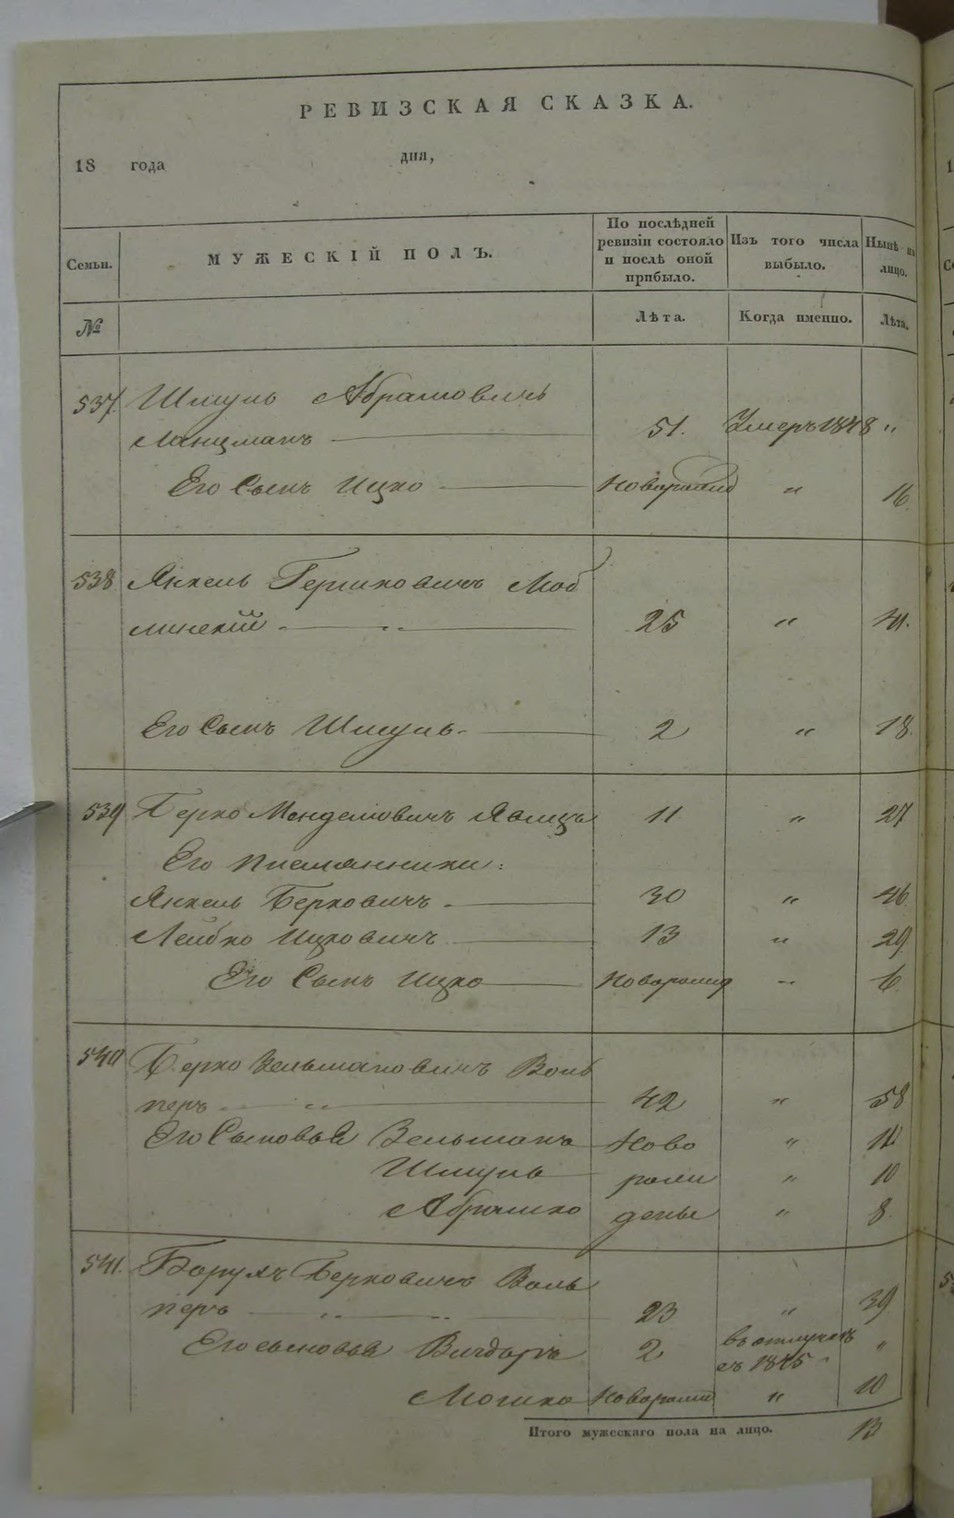 РЕВИЗСКАЯ СКАЗКА.
18 года дня,
Семьи. МУЖЕСКІЙ ПОЛЪ. По послѣдней ревизіи состояло и послѣ оной прибыло. Изъ того числа выбыло. Нынѣ на лицо.
№ Лѣта. Когда именно. Лѣта.
537 Шмуль Абрамовичъ
51. Умеръ 1848 "
Его Сынъ Ицко Новорожд " 16
538 Янкель Гершковичъ Люб
линскій 25 " 41.
Его Сынъ Шмуль 2 " 18.
539 Берко Менделиовичъ 11 " 27
Его племянники:
Янкель Берковичъ 30 " 46
Лейбко Ицковичъ 13 " 29
Его Сынъ Ицко Новорожд " 6
540 Берко Зельмановичъ Воль
перъ " 42 " 58
Его Сыновья Зельманъ Ново " 14
Шмуль рожд " 10
Абрамко деные " 8.
541. Борухъ Берковичъ Воль
перъ " " 23 " 39
Его сыновья Вигдоръ 2 въ отлучкѣ съ 1845 "
Мошко Новорожд " 10
Итого мужескаго пола на лицо. 13